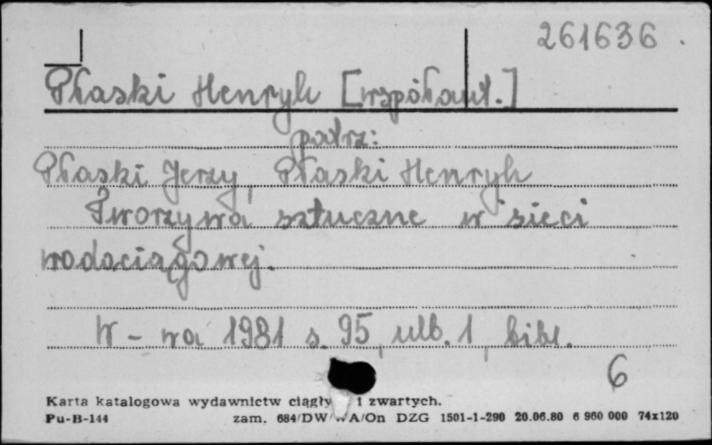 261636.
Płaski Henryk [współaut.]
patrz:
Płaski Jerzy, Płaski Henryk
Tworzywa sztuczne w sieci
wodociągowej.
W-wa 1981 s. 95, ulb. 1, bibl.
6
Karta katalogowa wydawnictw ciągły i zwartych.
Pu-B-144 zam. 684/DW/ A/On DZG 1501-1-290 20.06.80 6 960 000 74x120